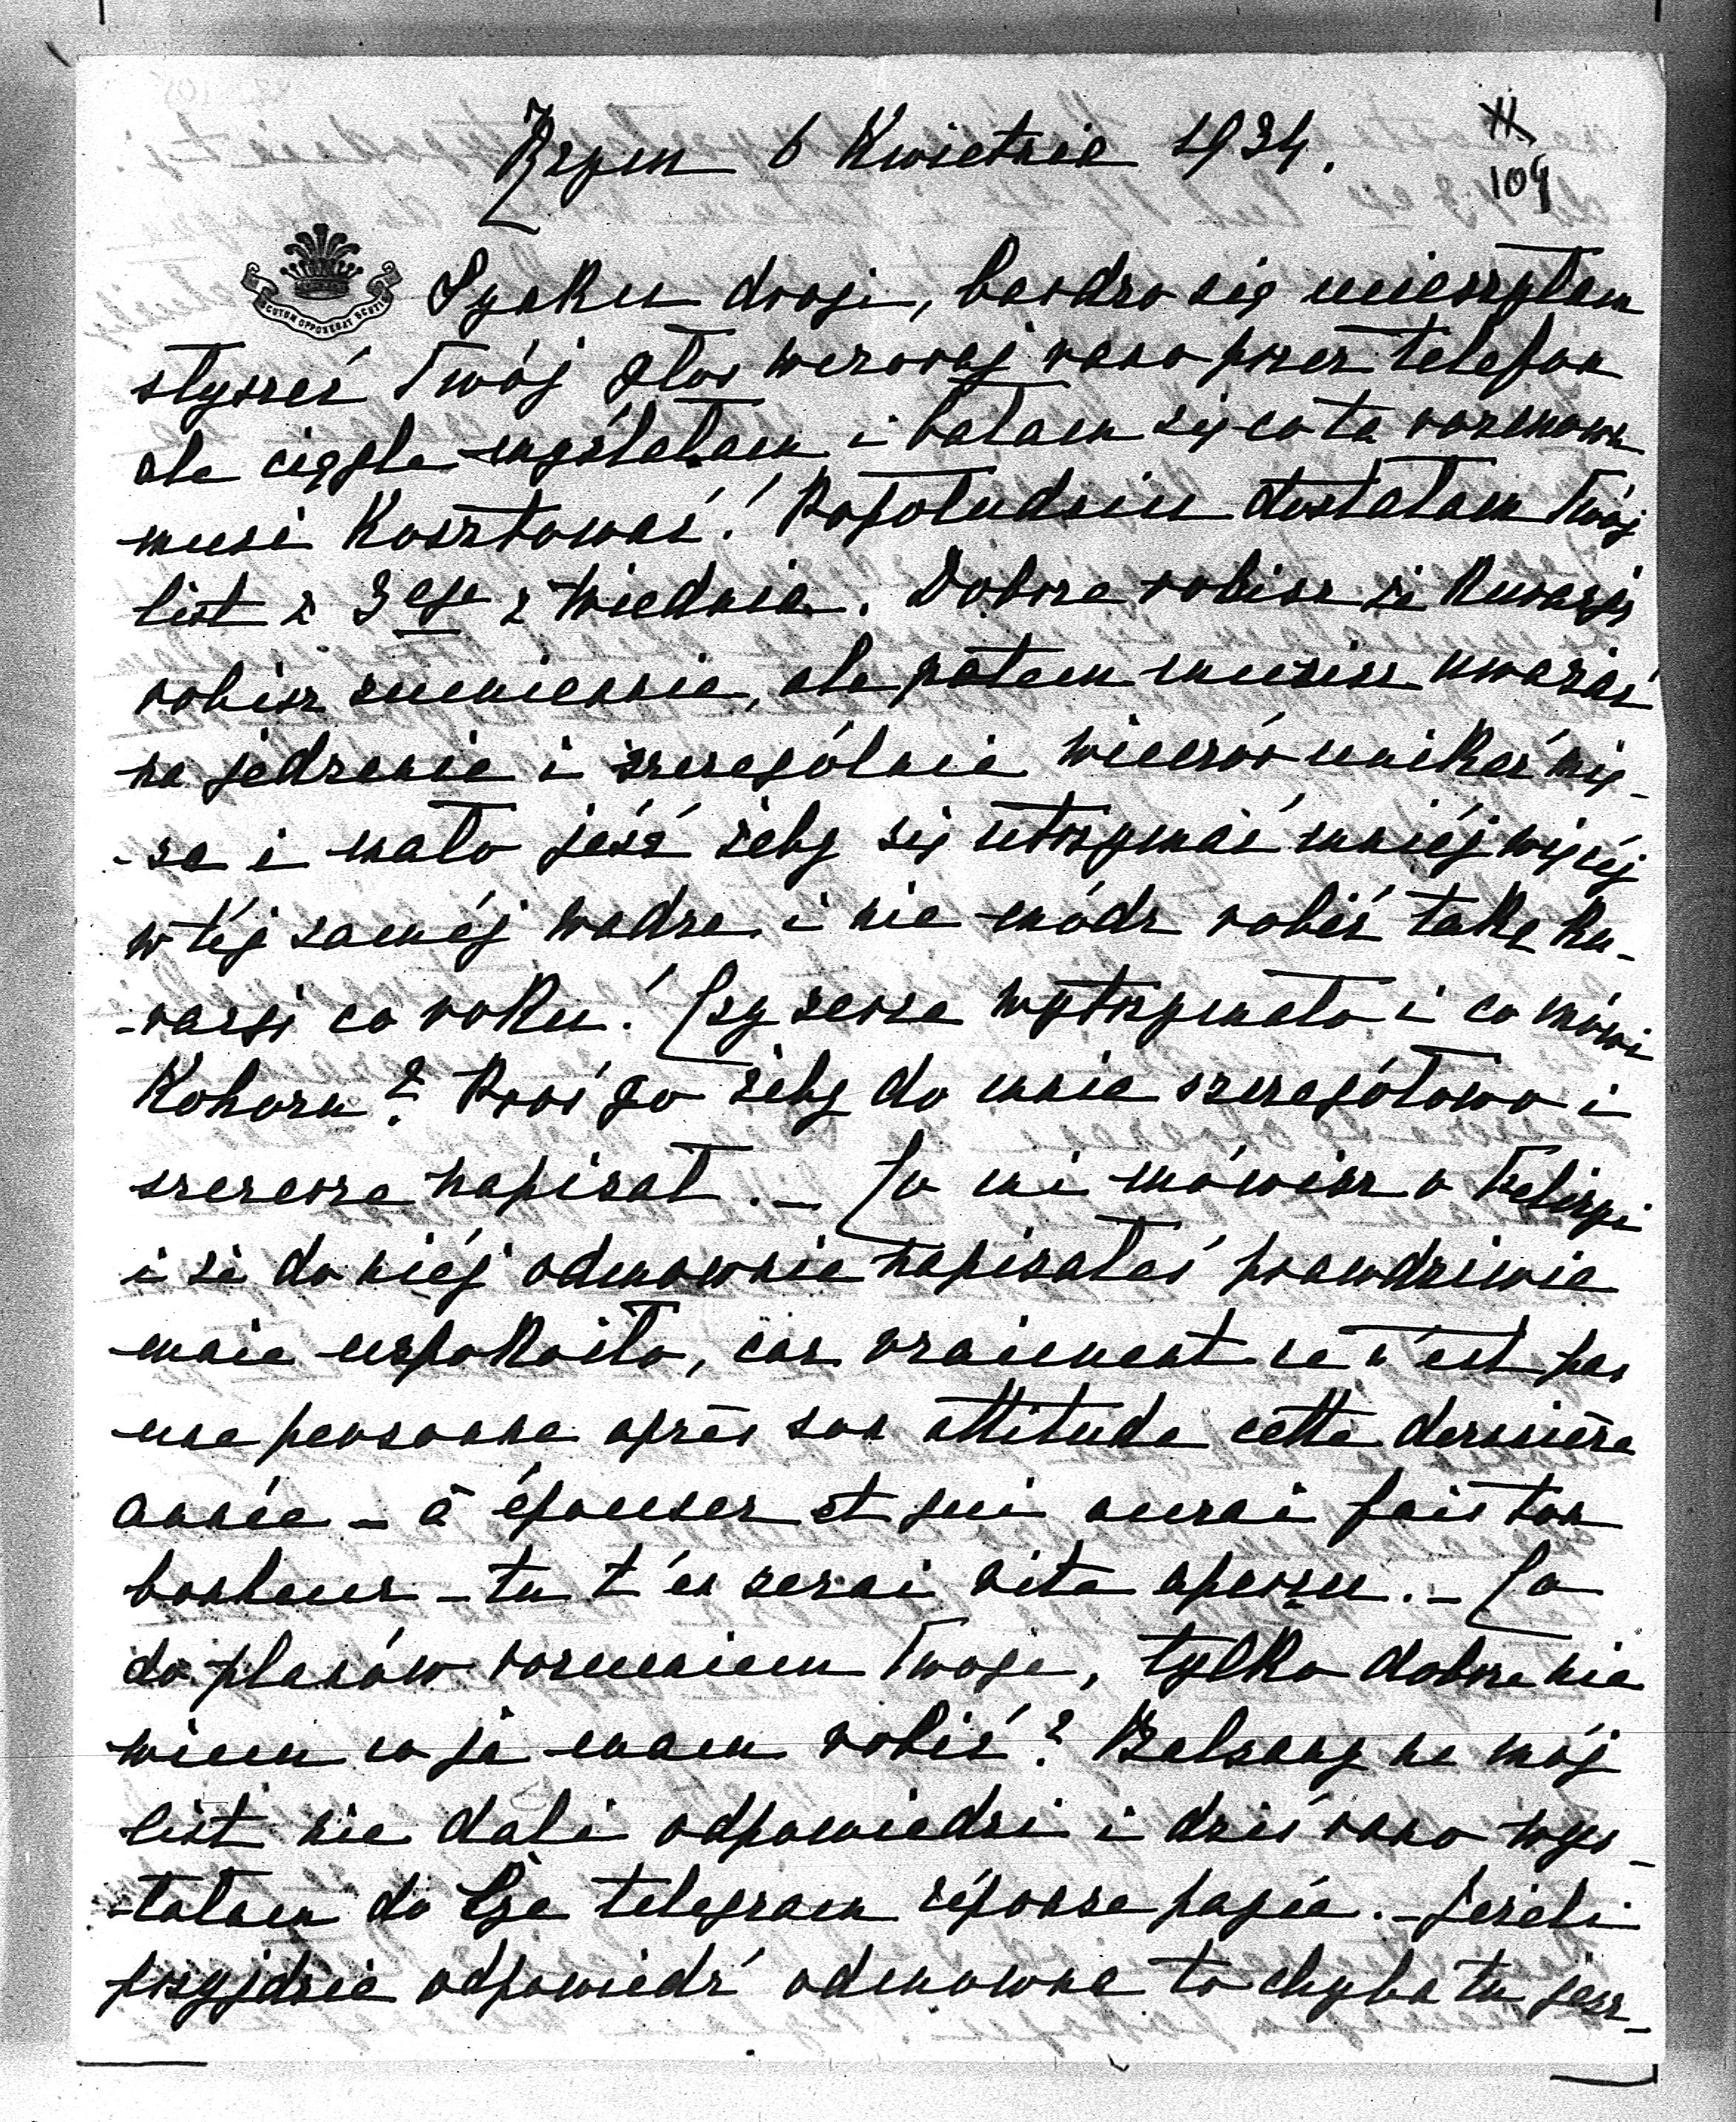 Rzym 6 Kwietnia 1934.
109
SCUTUM OPPONEBAT SCUTIS
Synku drogi, bardzo się ucieszyłam
słyszeć Twój głos wczoraj rano przez telefon
ale ciągle myślałam i bałam się co ta rozmowa
musi kosztować! Popołudniu dostałam Twój
list z 3ego z Wiednia. Dobrze robisz że kuracją
robisz sumiennie, ale potem musisz uważać
na jedzenie i szczególnie wieczór unikać mię-
-sa i mało jeść żeby się utrzymać mniej więcej
w tej samej wadze i nie módz robić taką ku-
-racji co roku! Czy serce wytrzymało i co mówi
Kohorn? Proś go żeby do mnie szczegółowo i
szczerze napisał. – Co mi mówisz o
i że do niéj odmownie napisałeś prawdziwie
mnie uspokoiło, car vraiment ce n'est pas
une personne après son attitude cette dernière
année – à épouser et qui aurai fait ton
bonheur – tu t'en serai vite aperçu. – Co
do planów rozumiem Twoje, tylko dobrze nie
wiem co ja mam robić? Balzany na mój
list nie dali odpowiedzi i dziś rano wys-
-łałam do telegram réponse payée. – Jeżeli
przyjdzie odpowiedź odmowna to chyba tu jesz-